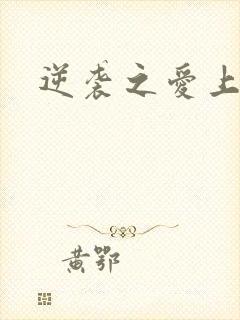 逆袭之爱上
黄鄂